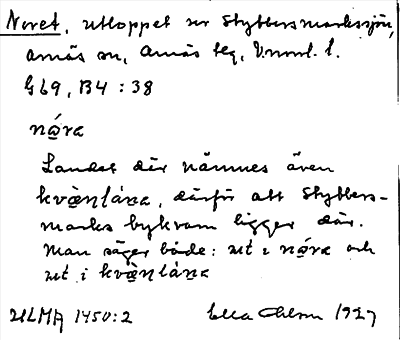 Noret, utloppet ur Stybbersmarkssjön,
Arnäs sn, Arnäs tlg, V.norrl. l.
G69, B4 : 38
nǫ́ra
Landet där nämnes även
kvæ̀ṇlána, därför att Stybbers-
marks bykvarn ligger där.
Man säger både: ut i nǫ́ra och
ut i kvæ̀ṇlána
ULMA 1450:2 Ella Ohlson 1927